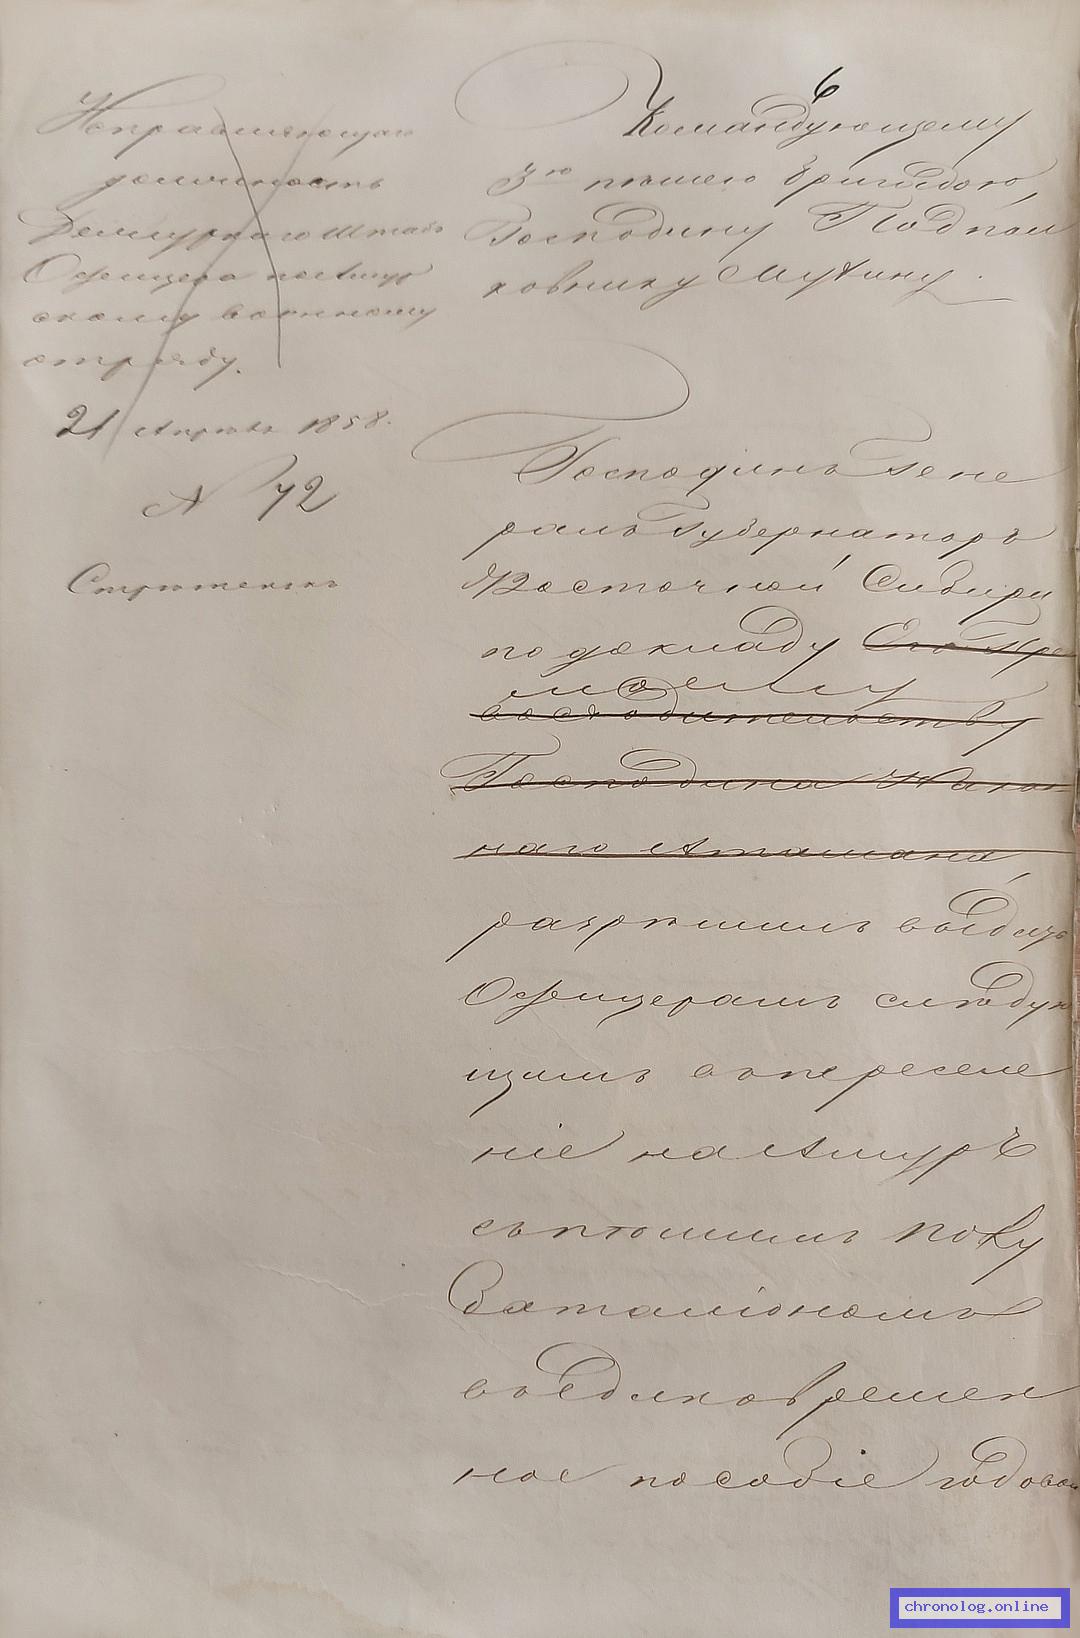 Исправляющаго
должность
Дежурнаго Штабъ
Офицера по Амур
скому военному
отряду.
21 Апрѣля 1858.
№ 72
Стрѣтенскъ
6
Командующему
3ю пѣшею бригадою,
Господину Подпол
ковнику Мухину.
Господинъ Гене
ралъ Губернаторъ
Восточной Сибири
по докладу Его Пре
моему
восходительству
Господина Наказ
наго Атамана,
разрѣшилъ выдать
Офицерамъ слѣдую
щимъ въ переселе
ніе на Амуръ
съ пѣшимъ полку
баталіономъ
въ единовремен
ное пособіе годовой
chronolog.online